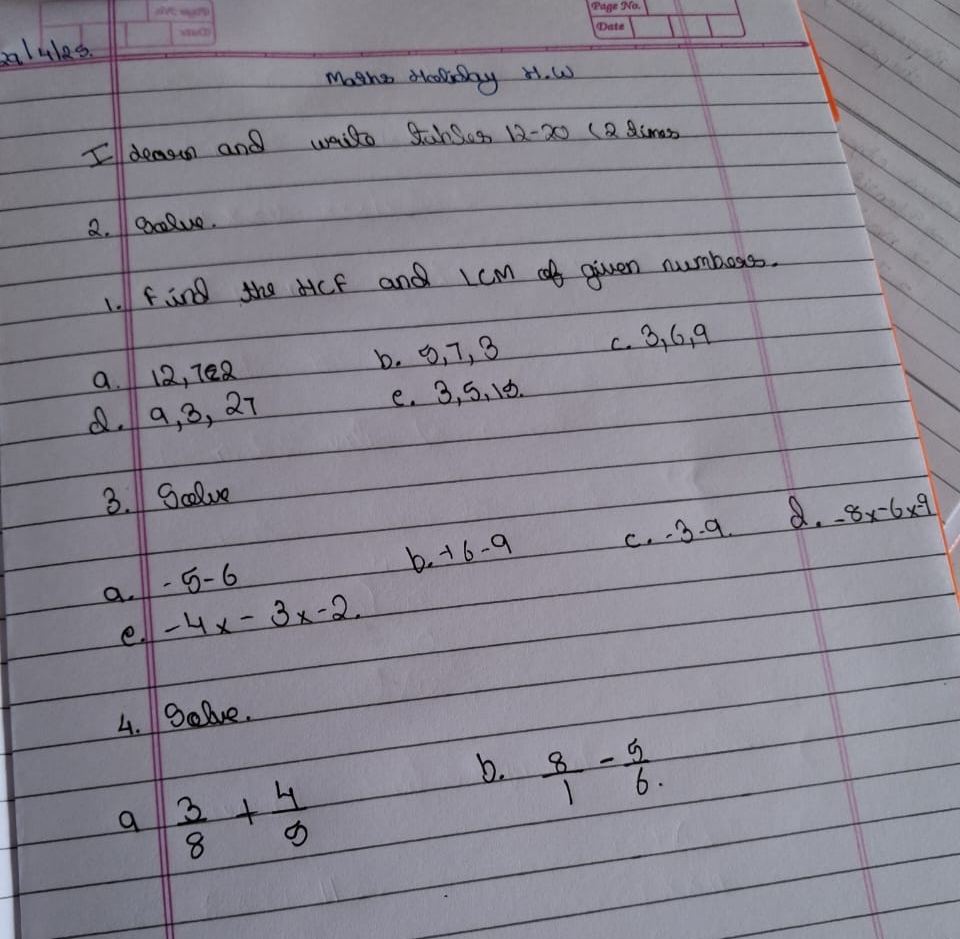 Page No.
Date
29/4/25.
Maths Holiday H.W
I learn and write tables 12-20 (2 times
2. Solve.
1. Find the HCF and LCM of given numbers.
a. 12, b. 5,7,3 c. 3,6,9
d. 9,3,27 e. 3,5,15.
3. Solve
a. -5-6 b. +6-9 c. -3-9. d. -8x-6x-9
e. -4x-3x-2.
4. Solve.
a 3/8 + 4/5 b. 8/1 - 5/6.